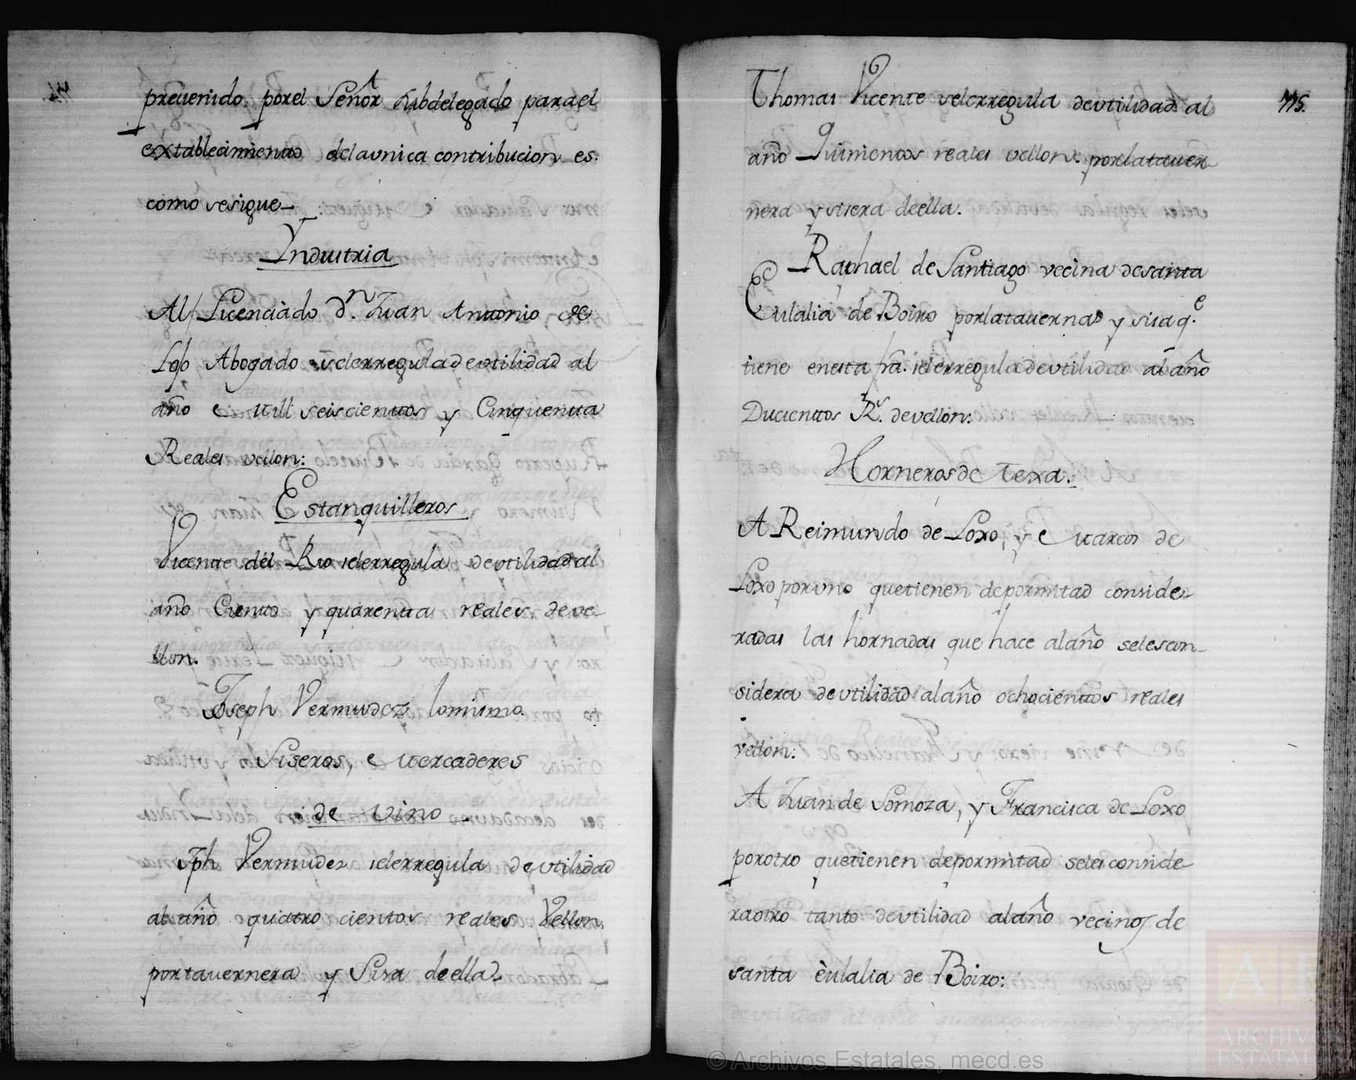 prevenido porel Señor subdelegado parael
extablecimiento delaunica contribucion es.
como sesigue
Yndustria
Al Licenciado Dn. Juan Antonio de
Abogado selerregula deutilidad al
año mill seiscientos y Cinquenta
Reales vellon:
Estanquilleros
Vicente del Rio selerregula deutilidad al
año Ciento y quarenta reales de ve
llon.
Joseph Vermudez lomismo.
Siseros, e mercaderes
de vino
Jph Vermudez selerregula deutilidad
al año quatro cientos reales Vellon,
portavernera y Sisa deella.
115.
Thomas Vicente selerregula deutilidad al
año Quinientos reales vellon. porlataver
nera y sisera deella.
Rachael de Santiago vecina desanta
Eulalia de Boiro porlataverna y sisa q.e
tiene enesta fra. selerregula deutilidad al año
Ducientos Rs. devellon:
Horneros de Texa.
A Reimundo de Loxo, y Marcos de
Loxo poruno quetienen depormitad conside
radas las hornadas que hace al año selescon
sidera deutilidad al año ochocientos reales
vellon:
A Juan de Somoza, y Francisca de Loxo
porotro quetienen depormitad seles conside
raotro tanto deutilidad al año vecinos de
santa èulalia de Boiro:
© Archivos Estatales, mecd.es
ARCHIVOS
ESTATALES